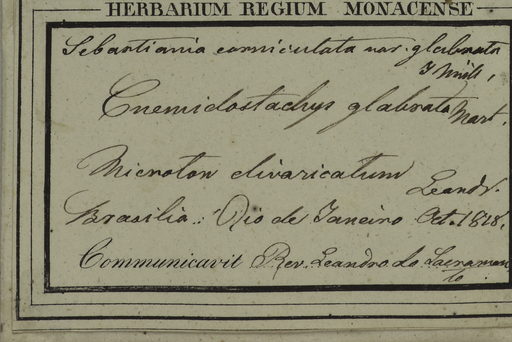 HERBARIUM REGIUM MONACENSE
Sebastiania corniculata var. glabrata
Cnemidostachys glabrata Mart.
Microton divaricatum Leandr.
Brasilia: Rio de Janeiro Oct. 1818.
Communicavit Rev. Leandro do Sacramen
to.